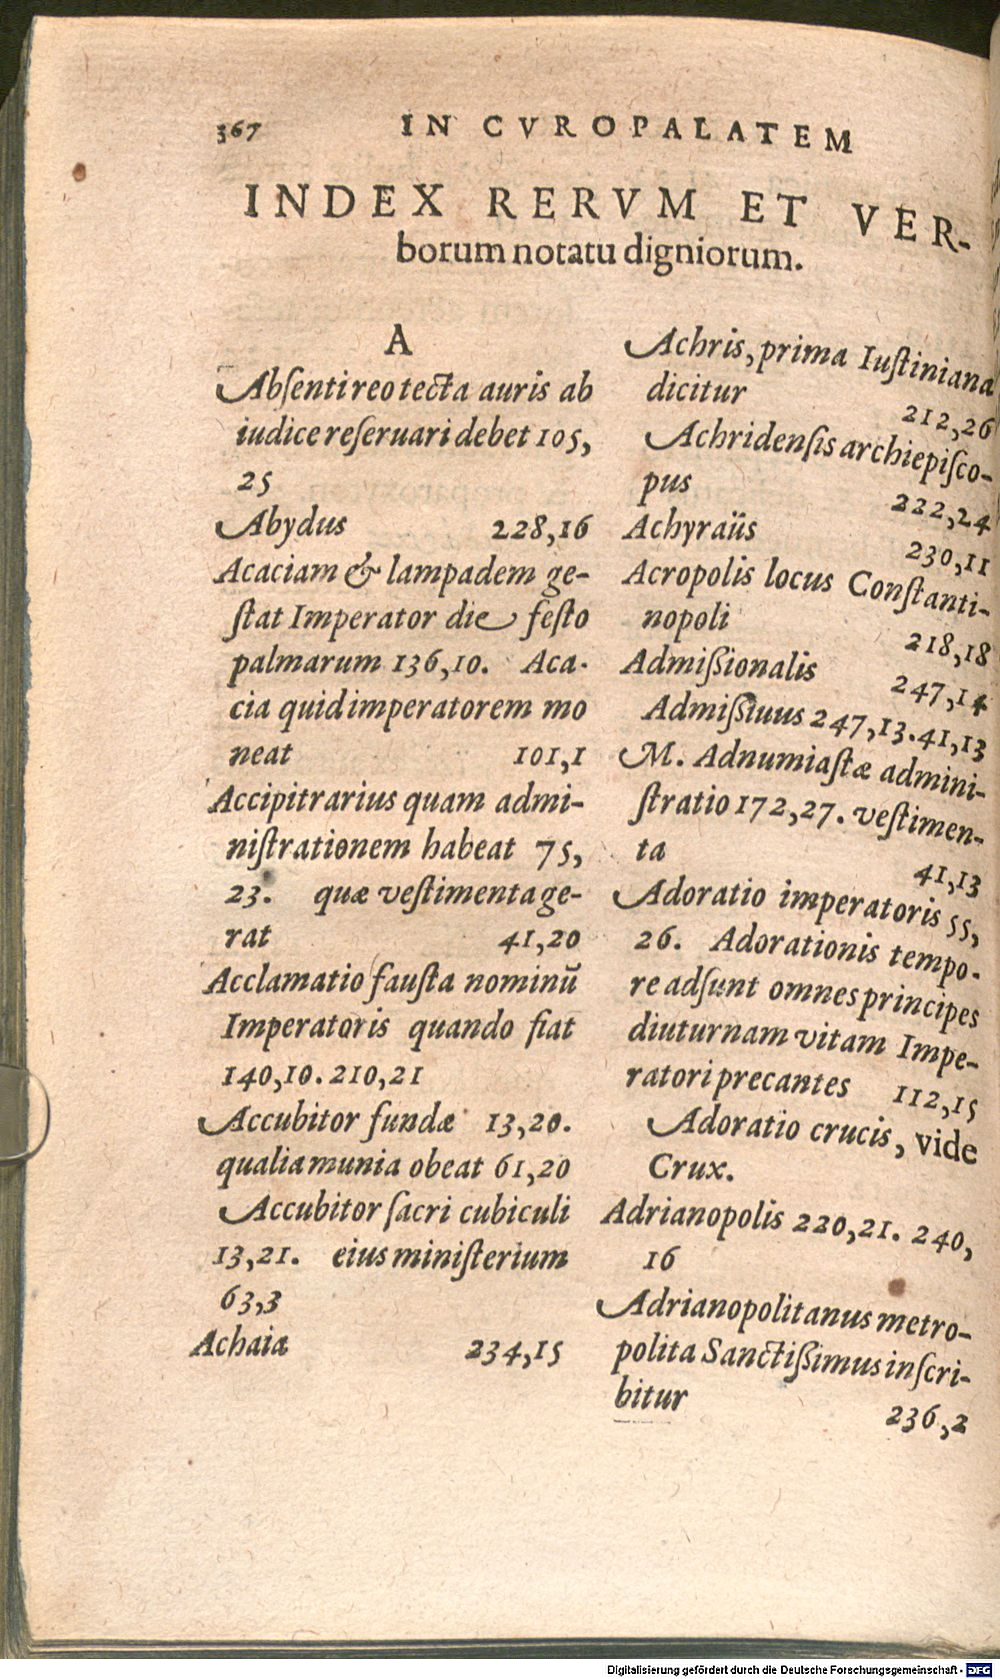 367 IN CVROPALATEM
INDEX RERVM ET VER-
borum notatu digniorum.
A
Absenti reo tecta auris ab
iudice reseruari debet 105,
25
Abydus 228,16
Acaciam & lampadem ge-
stat Imperator die festo
palmarum 136,10. Aca-
cia quid imperatorem mo
neat 101,1
Accipitrarius quam admi-
nistrationem habeat 75,
23. quæ vestimenta ge-
rat 41,20
Acclamatio fausta nominū
Imperatoris quando fiat
140,10. 210,21
Accubitor fundæ 13,20.
qualia munia obeat 61,20
Accubitor sacri cubiculi
13,21. eius ministerium
63,3
Achaia 234,15
Achris, prima Iustiniana
dicitur 212,26
Achridensis archiepisco-
pus 222,24
Achyraüs 230,11
Acropolis locus Constanti-
nopoli 218,18
Admißionalis 247,14
Admißiuus 247,13. 41,13
M. Adnumiastæ admini-
stratio 172,27. vestimen-
ta 41,13
Adoratio imperatoris 55,
26. Adorationis tempo-
re adsunt omnes principes
diuturnam vitam Impe-
ratori precantes 112,15
Adoratio crucis, vide
Crux.
Adrianopolis 220,21. 240,
16
Adrianopolitanus metro-
polita Sanctißimus inscri-
bitur 236,2
Digitalisierung gefördert durch die Deutsche Forschungsgemeinschaft - DFG